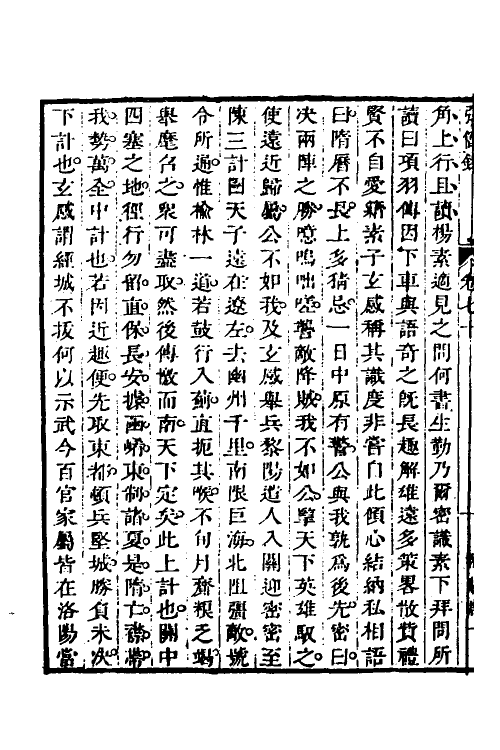 角上行且讀楊素適見之問何書生勤乃爾密識素下拜問所
讀曰項羽傳因下車與語奇之旣長趣解雄遠多策畧散貲禮
賢不自愛藉素子玄感稱其識度非嘗自此傾心結納私相語
曰隋曆不長上多猜忌一日中原有警公與我孰爲後先密曰
决兩陣之勝噫嗚咄嗟讋敵降賊我不如公擥天下英雄馭之
使遠近歸屬公不如我及玄感舉兵黎陽遣人入關迎密密至
陳三計曰天子遠在遼左去幽州千里南限巨海北阻彊敵號
令所通惟榆林一道若鼓行入薊直扼其喉不旬月齎糧乏竭
舉麾召之衆可盡取然後傳檄而南天下定矣此上計也關中
四塞之地徑行勿留直保長安據函崤東制諸夏是隋亡襟帶
我勢萬全中計也若因近趣便先取東都頓兵堅城勝負未决
下計也玄感謂經城不拔何以示武今百官家屬皆在洛陽當